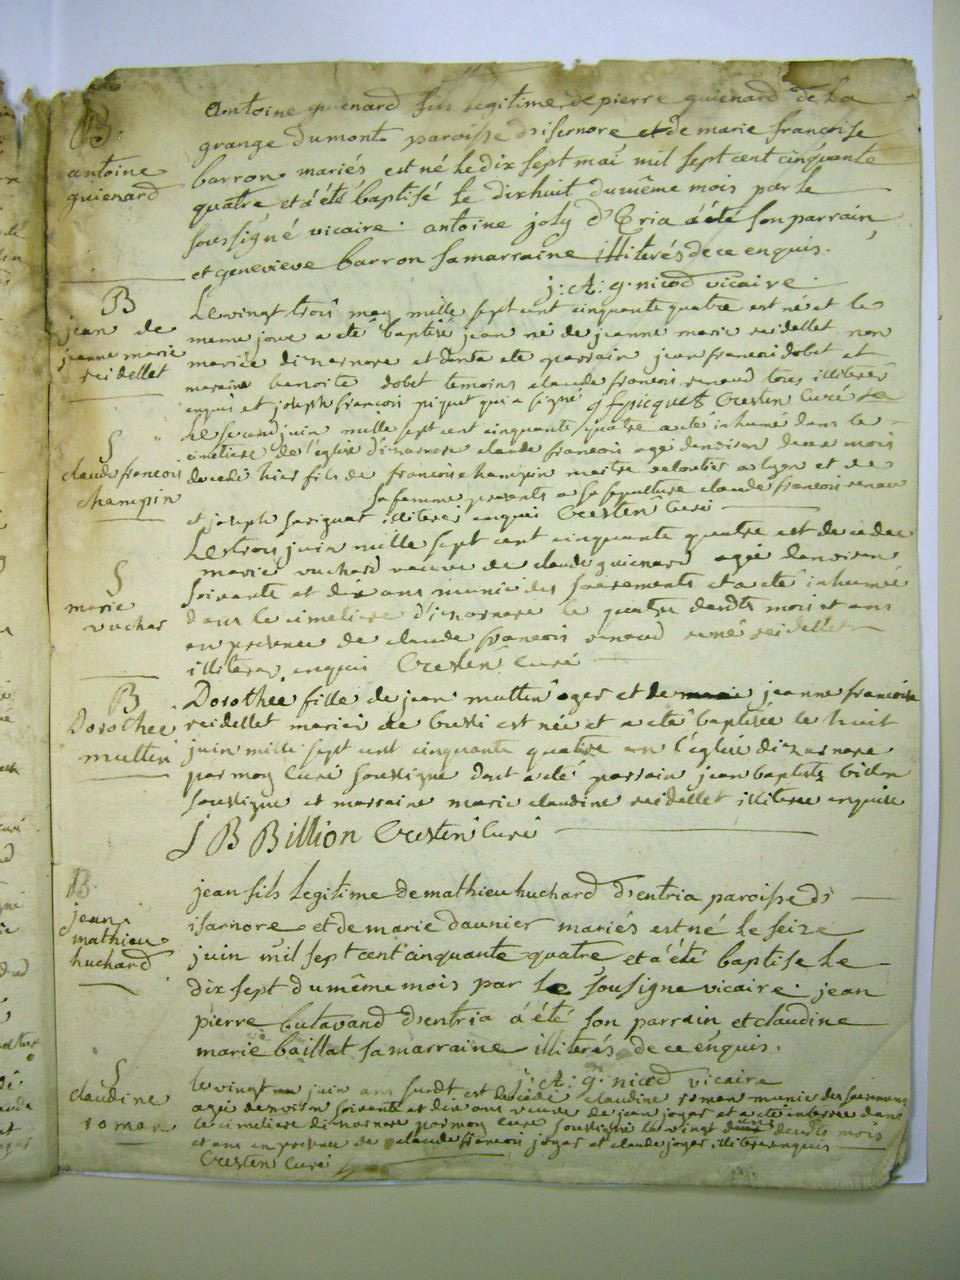 B.
antoine
guienard
antoine guienard fils legitime de pierre guienard de La
grange du mont paroisse d'isernore et de marie françoise
barron mariés est né le dix sept mai mil sept cent cinquante
quatre et a été baptisé Le dixhuit du même mois par le
soussigné vicaire. antoine joly d'Eria a été son parrain,
et genevieve barron sa marraine illiterés de ce enquis.
j: A: g. nicod vicaire
B
jean de
jeanne marie
reidellet
Le vingt trois may mille sept cent cinquante quatre est né et le
meme jour a eté baptisé jean né de jeanne marie reidellet non
mariée d'izarnore et dont a eté parrain jean francoi dobet et
maraine benoite dobet temoins claude francois renaud tous illiterés
enquis et joseph françois piquet qui a signé j f picquet Cresten Curé
S
claude francois
champin
Le second juin mille sept cent cinquante quatre a eté inhumé dans le
cimetiere de l'église d'izarnore claude francois agé denviron deux mois
decedé hier fils de francois champin maitre veloutier a lyon et de
sa femme presents a sa sepulture claude francois renau
et joseph illiteré enqui Cresten Curé
S
marie
vuchar
Le trois juin mille sept cent cinquante quatre est decedée
marie vuchard veuve de claude guienard agée denviron
soixante et dix ans munie des sacrements et a eté inhumée
dans le cimetiere d'izarnore le quatre desdts mois et ans
en presence de claude francois renaud rené reidellet
illiteres enqui Cresten Curé
B
Dorothee
muttin
Dorothee fille de jean muttin ager et de jeanne francoise
reidellet mariés de est née et a eté baptisée le huit
juin mille sept cent cinquante quatre en l'église dizarnore
par moy Curé soussigne dont a eté parrain jean baptiste billon
soussigne et marraine marie claudine reidellet illiteree enquise
J B Billion Cresten Curé
B.
jean
mathieu
huchard
jean fils Legitime de mathieu huchard d'entria paroisse d'i
isarnore et de marie daunier mariés est né Le seize
juin mil sept cent cinquante quatre et a été baptise Le
dix sept du même mois par le sousigne vicaire. jean
pierre butavand d'entria a été son parrain et claudine
marie baillat sa marraine illiterés de ce enquis.
j: A: g. nicod vicaire
S
claudine
roman
le vingt juin an susdt est decedé claudine roman munie des sacremens
agée denviron soixante et dix ans veuve de jean joyar et a eté enterrée dans
le cimetiere dizarnore par moy Curé soussigné le vingt desdts mois
et ans en presence de claude francois joyar et claude joyar illiteres enquis
Cresten Curé